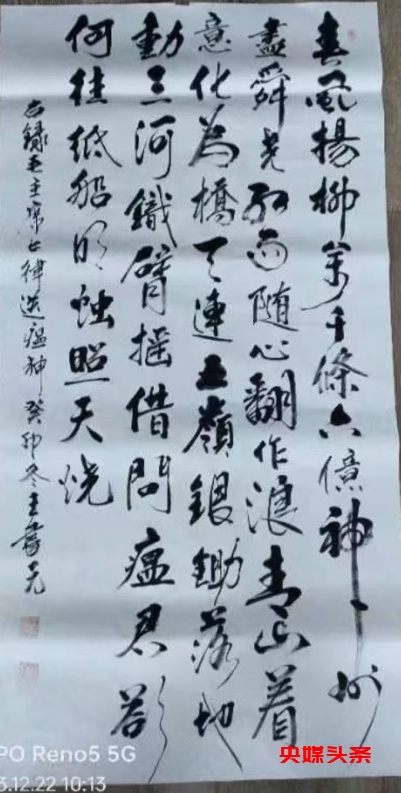 春風揚柳萬千條六億神州
盡舜堯紅雨随心翻作浪青山着
意化為橋天連五嶺銀鋤落地
動三河鐵臂摇借問瘟君欲
何往紙船明燭照天烧
右録毛主席七律送瘟神癸卯冬王元
PO Reno5 5G
3.12.22 10:13
央媒头条